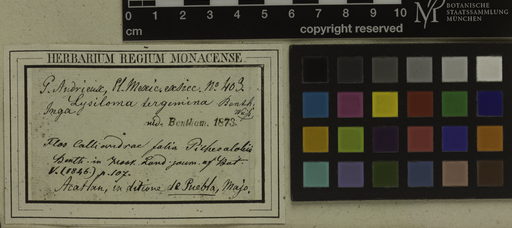 0 1 2 3 4 5 6 7 8 9 10
cm
copyright reserved
BOTANISCHE
STAATSSAMMLUNG
MÜNCHEN
HERBARIUM REGIUM MONACENSE
G. Andrieux, Pl. Mexic. exsicc. No 403.
Lysiloma tergemina Benth.
Inga
vid. Bentham. 1873.
Flos Calliandrae folia Pithecolobii
Benth. in Hook. Lond. journ. of Bot.
V. (1846) p. 107.
Acatlan, in ditione de Puebla, Majo.